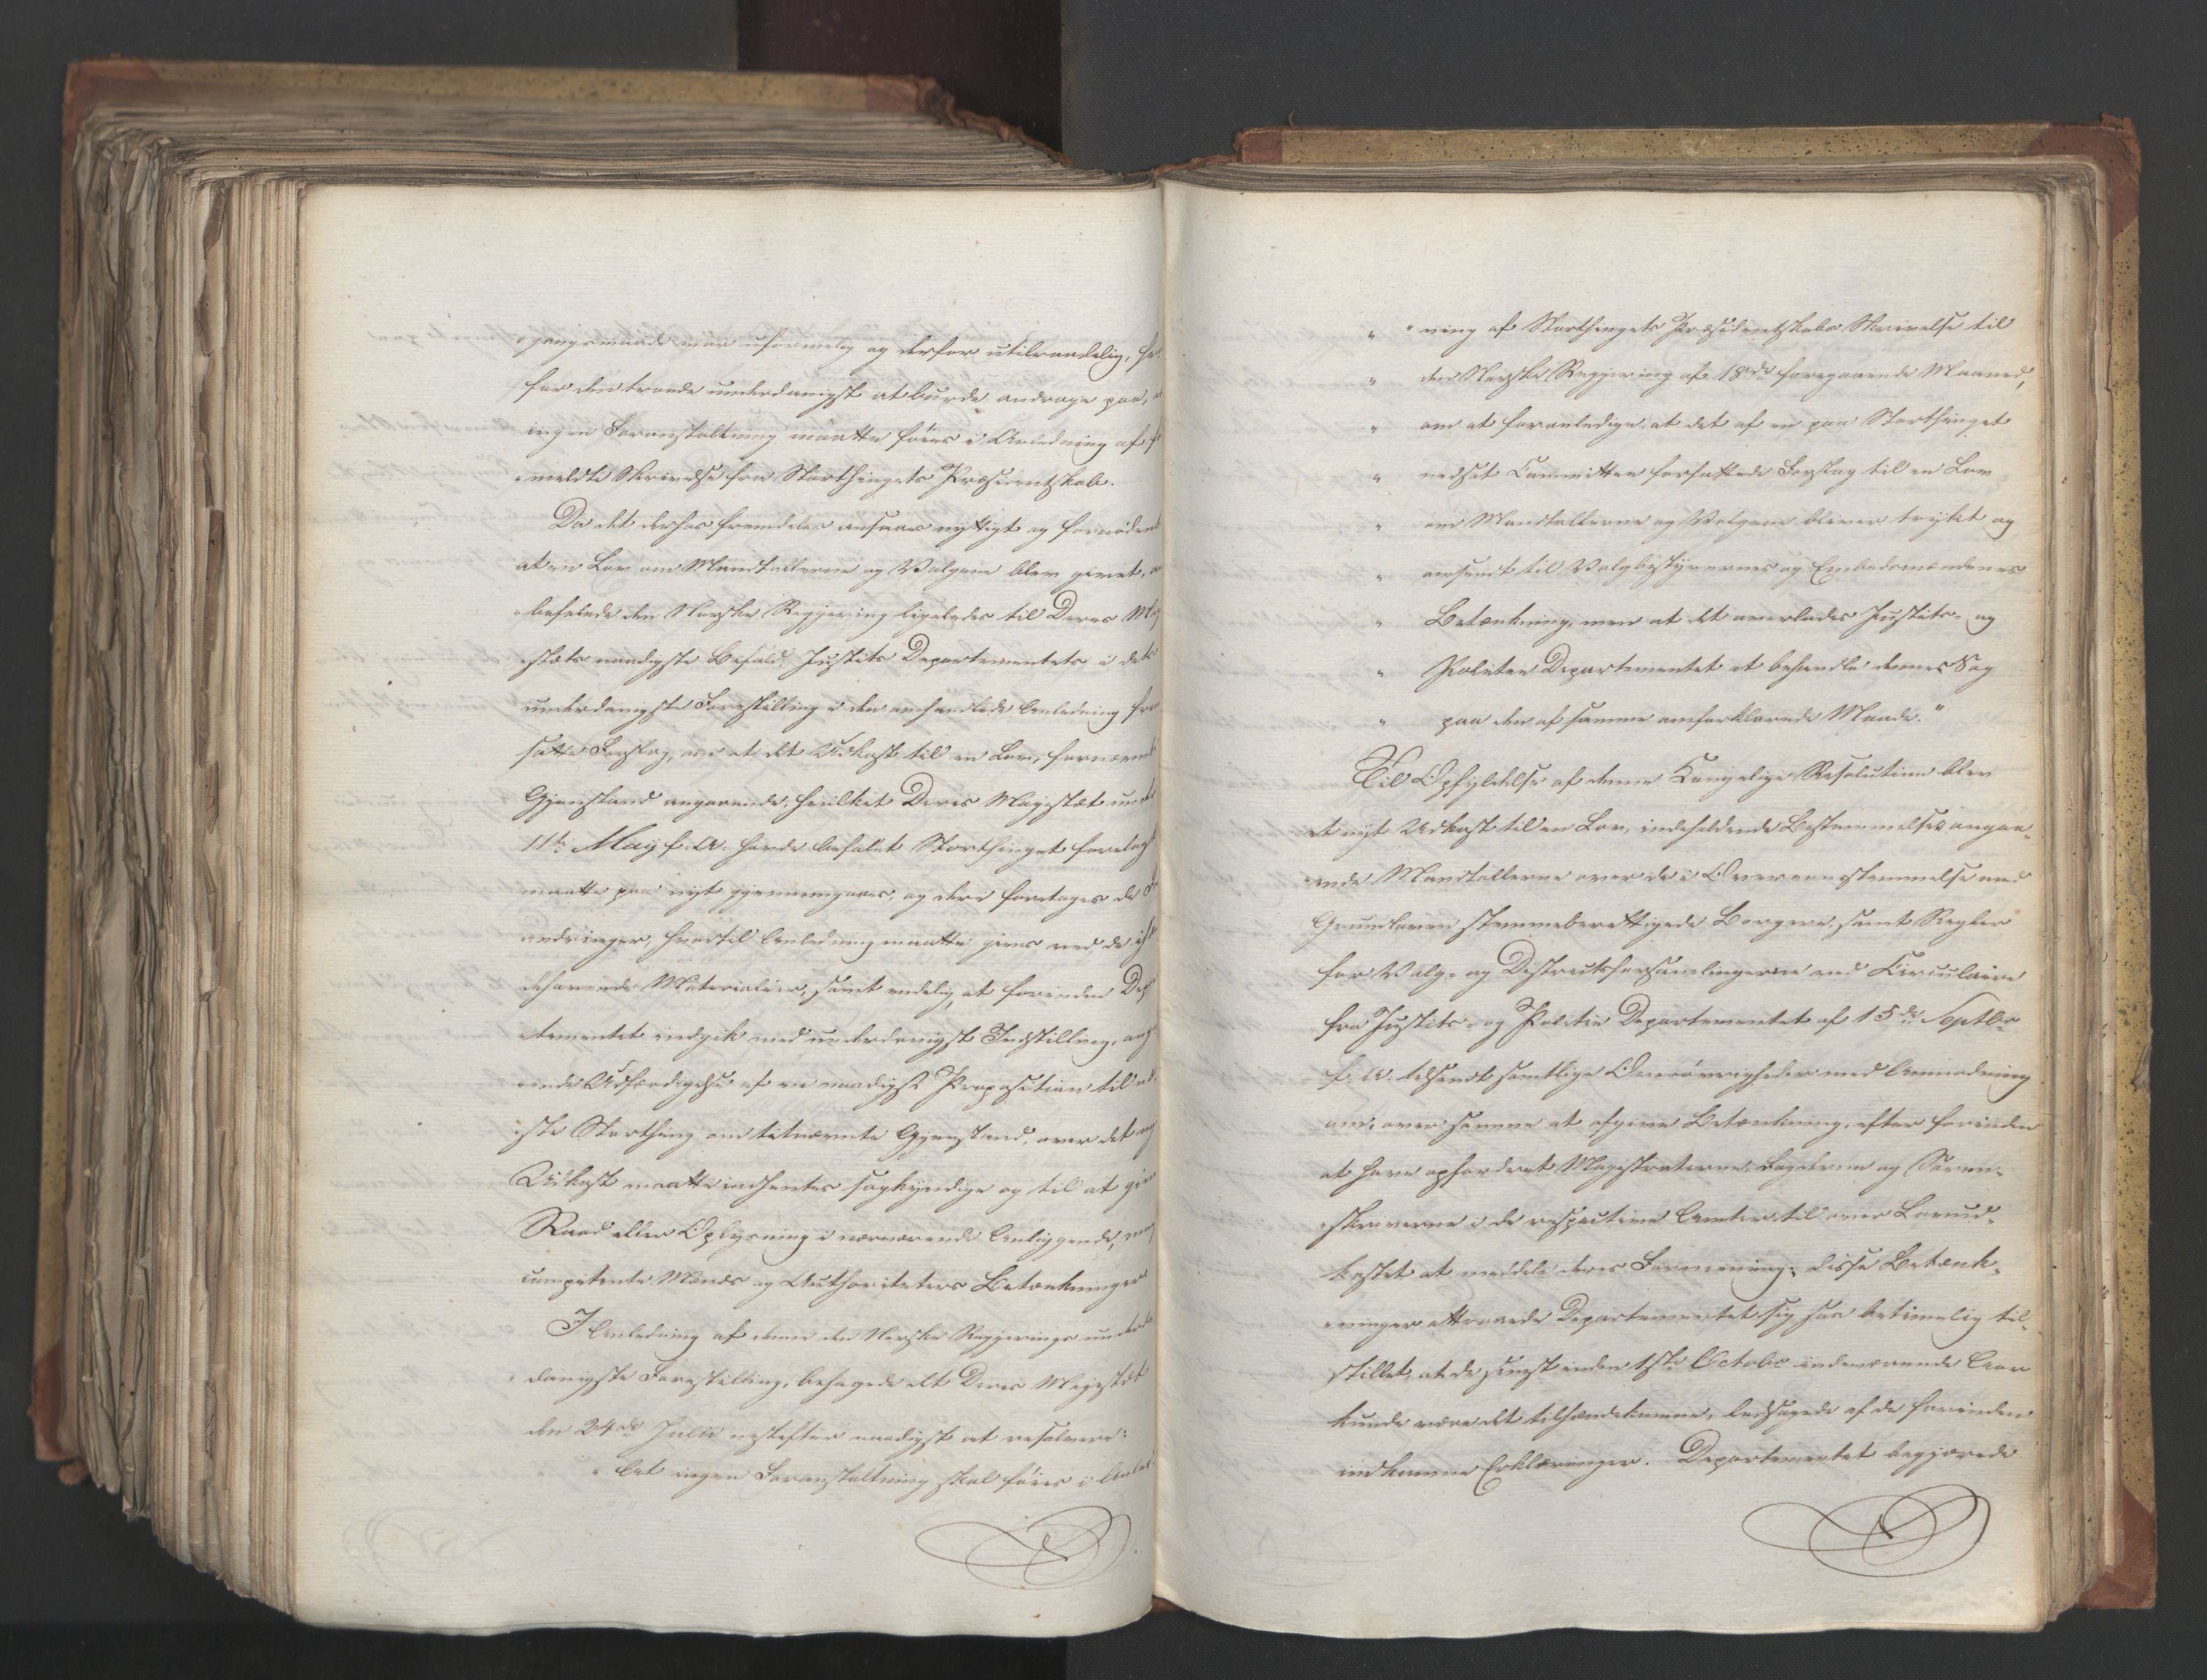 gangsmaade var uformelig og derfor utilraadelig, hvor-
for den troede underdanigst at burde andrage paa, a
ingen Foranstaltning maatte føies i Anledning af f
meldte Skrivelse fra Storthingets Præsidentskab.
Da det derhos fremdeles ansaaes nyttigt og fornødent
at en Lov om Mandtallerne og Valgene blev givet, a
befalede den Norske Regjering ligeledes til Deres Maj
stæts naadigste Bifald, Justits Departementets i dets
underdanigste Forestilling i den omhandlede Anledning frem
satte Forslag, om at det Udkast til en Lov, fornævnte
Gjenstand angaaende, hvilket Deres Majestæt under
11te May f. A. havde befalet Storthinget forelagt
maatte paa nyt gjennemgaaes, og deri foretages de Fo
andringer, hvortil Anledning maatte gives ved de ih
dehavende Materialier, samt endelig, at forinden Dep
tementet indgik med underdanigst Indstilling, ang
ende Udfærdigelse af en naadigst Proposition til næ
ste Storthing om bemeldte Gjenstand, over det ny
Udkast maatte indhentes sagkyndige og til at give
Raad eller Oplysning i nærværende Anliggende,
competente Mænds og Authoriteters Betænkninger
I Anledning af denne den Norske Regjerings under
danigste Forestilling, behagede det Deres Majestæt
den 24de Julii nestefter naadigst at resolvere:
" At ingen Foranstaltning skal føies i Anled
" ning af Storthingets Præsidentskabs Skrivelse til
" den Norske Regjering af 18de foregaaende Maaned,
" om at foranledige, at det af en paa Storthinget
" nedsat Committee forfattede Forslag til en Lov
" om Mandtallerne og Valgene bliver trykt og
" omsendt til Valgbestyrernes og Embedsmændenes
" Betænkning, men at det overlades Justits- og
" Politie Departementet at behandle denne Sag
" paa den af samme omforklarede Maade."
Til Opfyldelse af denne Kongelige Resolution blev
et nyt Udkast til en Lov, indeholdende Bestemmelser angaa-
ende Mandtallerne over de i Overeensstemmelse med
Grundloven stemmeberettigede Borgere, samt Regler
for Valg- og Districtsforsamlingerne ved Circulaire
fra Justits- og Politie Departementet af 15de Septbr
f. A. tilsendt samtlige Overøvrigheder med Anmodning
om, over samme at afgive Betænkning, efter forinden
at have opfordret Magistraterne, Fogderne og Soren-
skriverne i de respective Amter til over Lovud-
kastet at meddele deres Formening; disse Betænk-
ninger attraaede Departementet sig saa betimelig til-
stillet, at de senest inden 1ste Octobr indeværende Aar
kunde være det tilhændekomne, ledsagede af de forinden
indkomne Erklæringer. Departementet begjærede